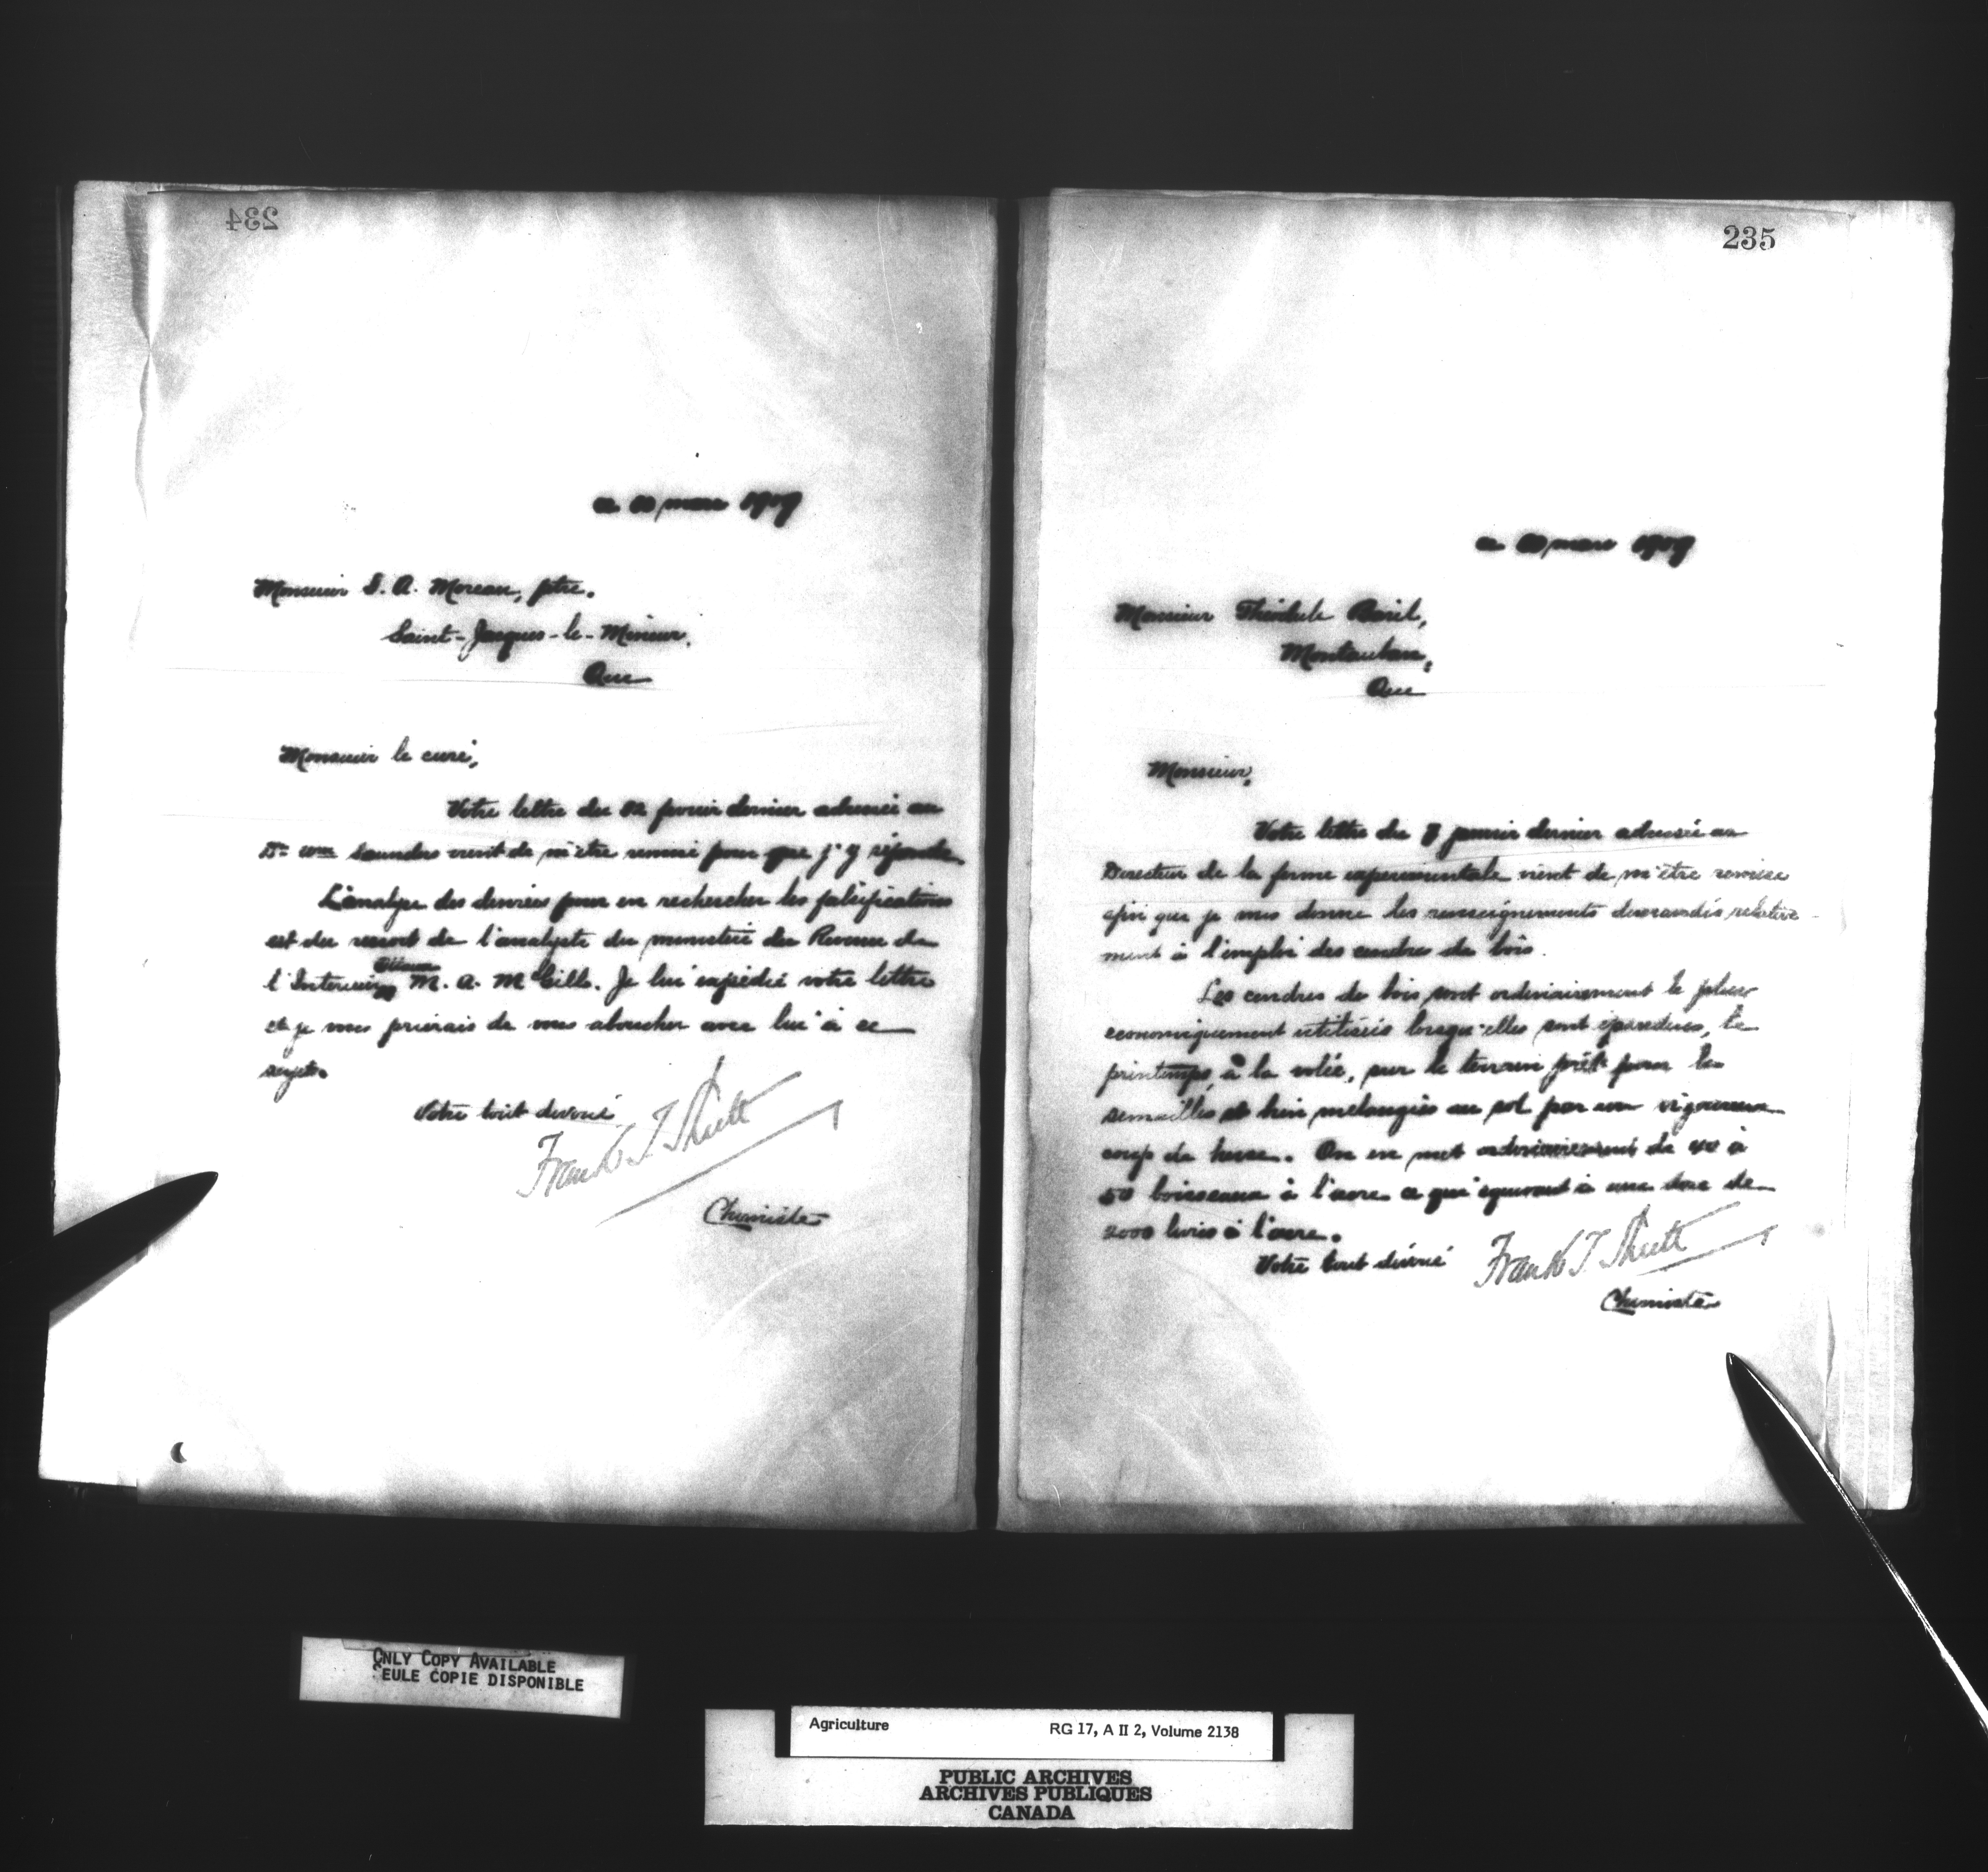 234
ce mars 1909
Monsieur S. A. Moreau, ptre.
Saint-Jacques-le-Mineur,
Que
Monsieur le curé,
Votre lettre du dernier adressée au
Dr Wm Saunders vient de m'être remise pour que j'y réponde.
L'analyse des denrées pour en rechercher les falsifications
est du ressort de l'analyste du ministère du Revenu de
Ottawa
l'Interieur, M. A. McGill. Je lui expédié votre lettre
et je vous prierais de vous aboucher avec lui à ce
sujet.
Votre tout dévoué
Frank T. Shutt
Chimiste
235
ce mars 1909
Monsieur Basil,
Montauban,
Que
Monsieur,
Votre lettre du 7 janvier dernier adressée au
Directeur de la ferme experimentale vient de m'être remise
afin que je vous donne les renseignements demandés relative-
ment à l'emploi des cendres de bois.
Les cendres de bois sont ordinairement le plus
economiquement utilisées lorsqu'elles sont épandues, le
printemps, à la volée, sur le terrain prêt pour les
semailles et bien melangées au sol par un vigoureux
coup de herse. On en met ordinairement de 40 à
50 boisseaux à l'acre ce qui équivaut à une dose de
2000 livres à l'acre.
Votre tout dévoué
Frank T. Shutt
Chimiste
ONLY COPY AVAILABLE
SEULE COPIE DISPONIBLE
Agriculture RG 17, A II 2, Volume 2138
PUBLIC ARCHIVES
ARCHIVES PUBLIQUES
CANADA